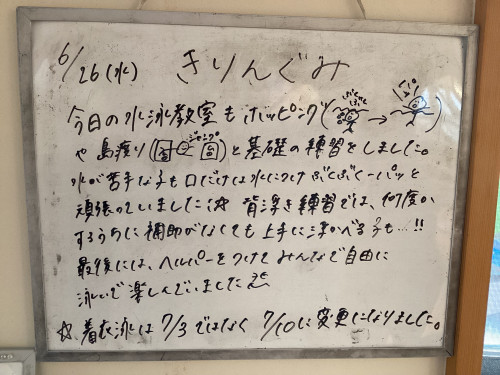 6/26(水) きりんぐみ
今日の水泳教室もボッピング(ぶくぶく→パッ)
や島渡り(ジャンプ)と基礎の練習をしました。
水が苦手な子も口だけは水につけぶくぶくーパッと
頑張っていました☆背浮き練習では、何度か
するうちに補助がなくても上手に浮かべる子も…!!
最後には、ヘルパーをつけてみんなで自由に
泳いで楽しんでいました
☆着衣泳は7/3ではなく7/10に変更になりました。